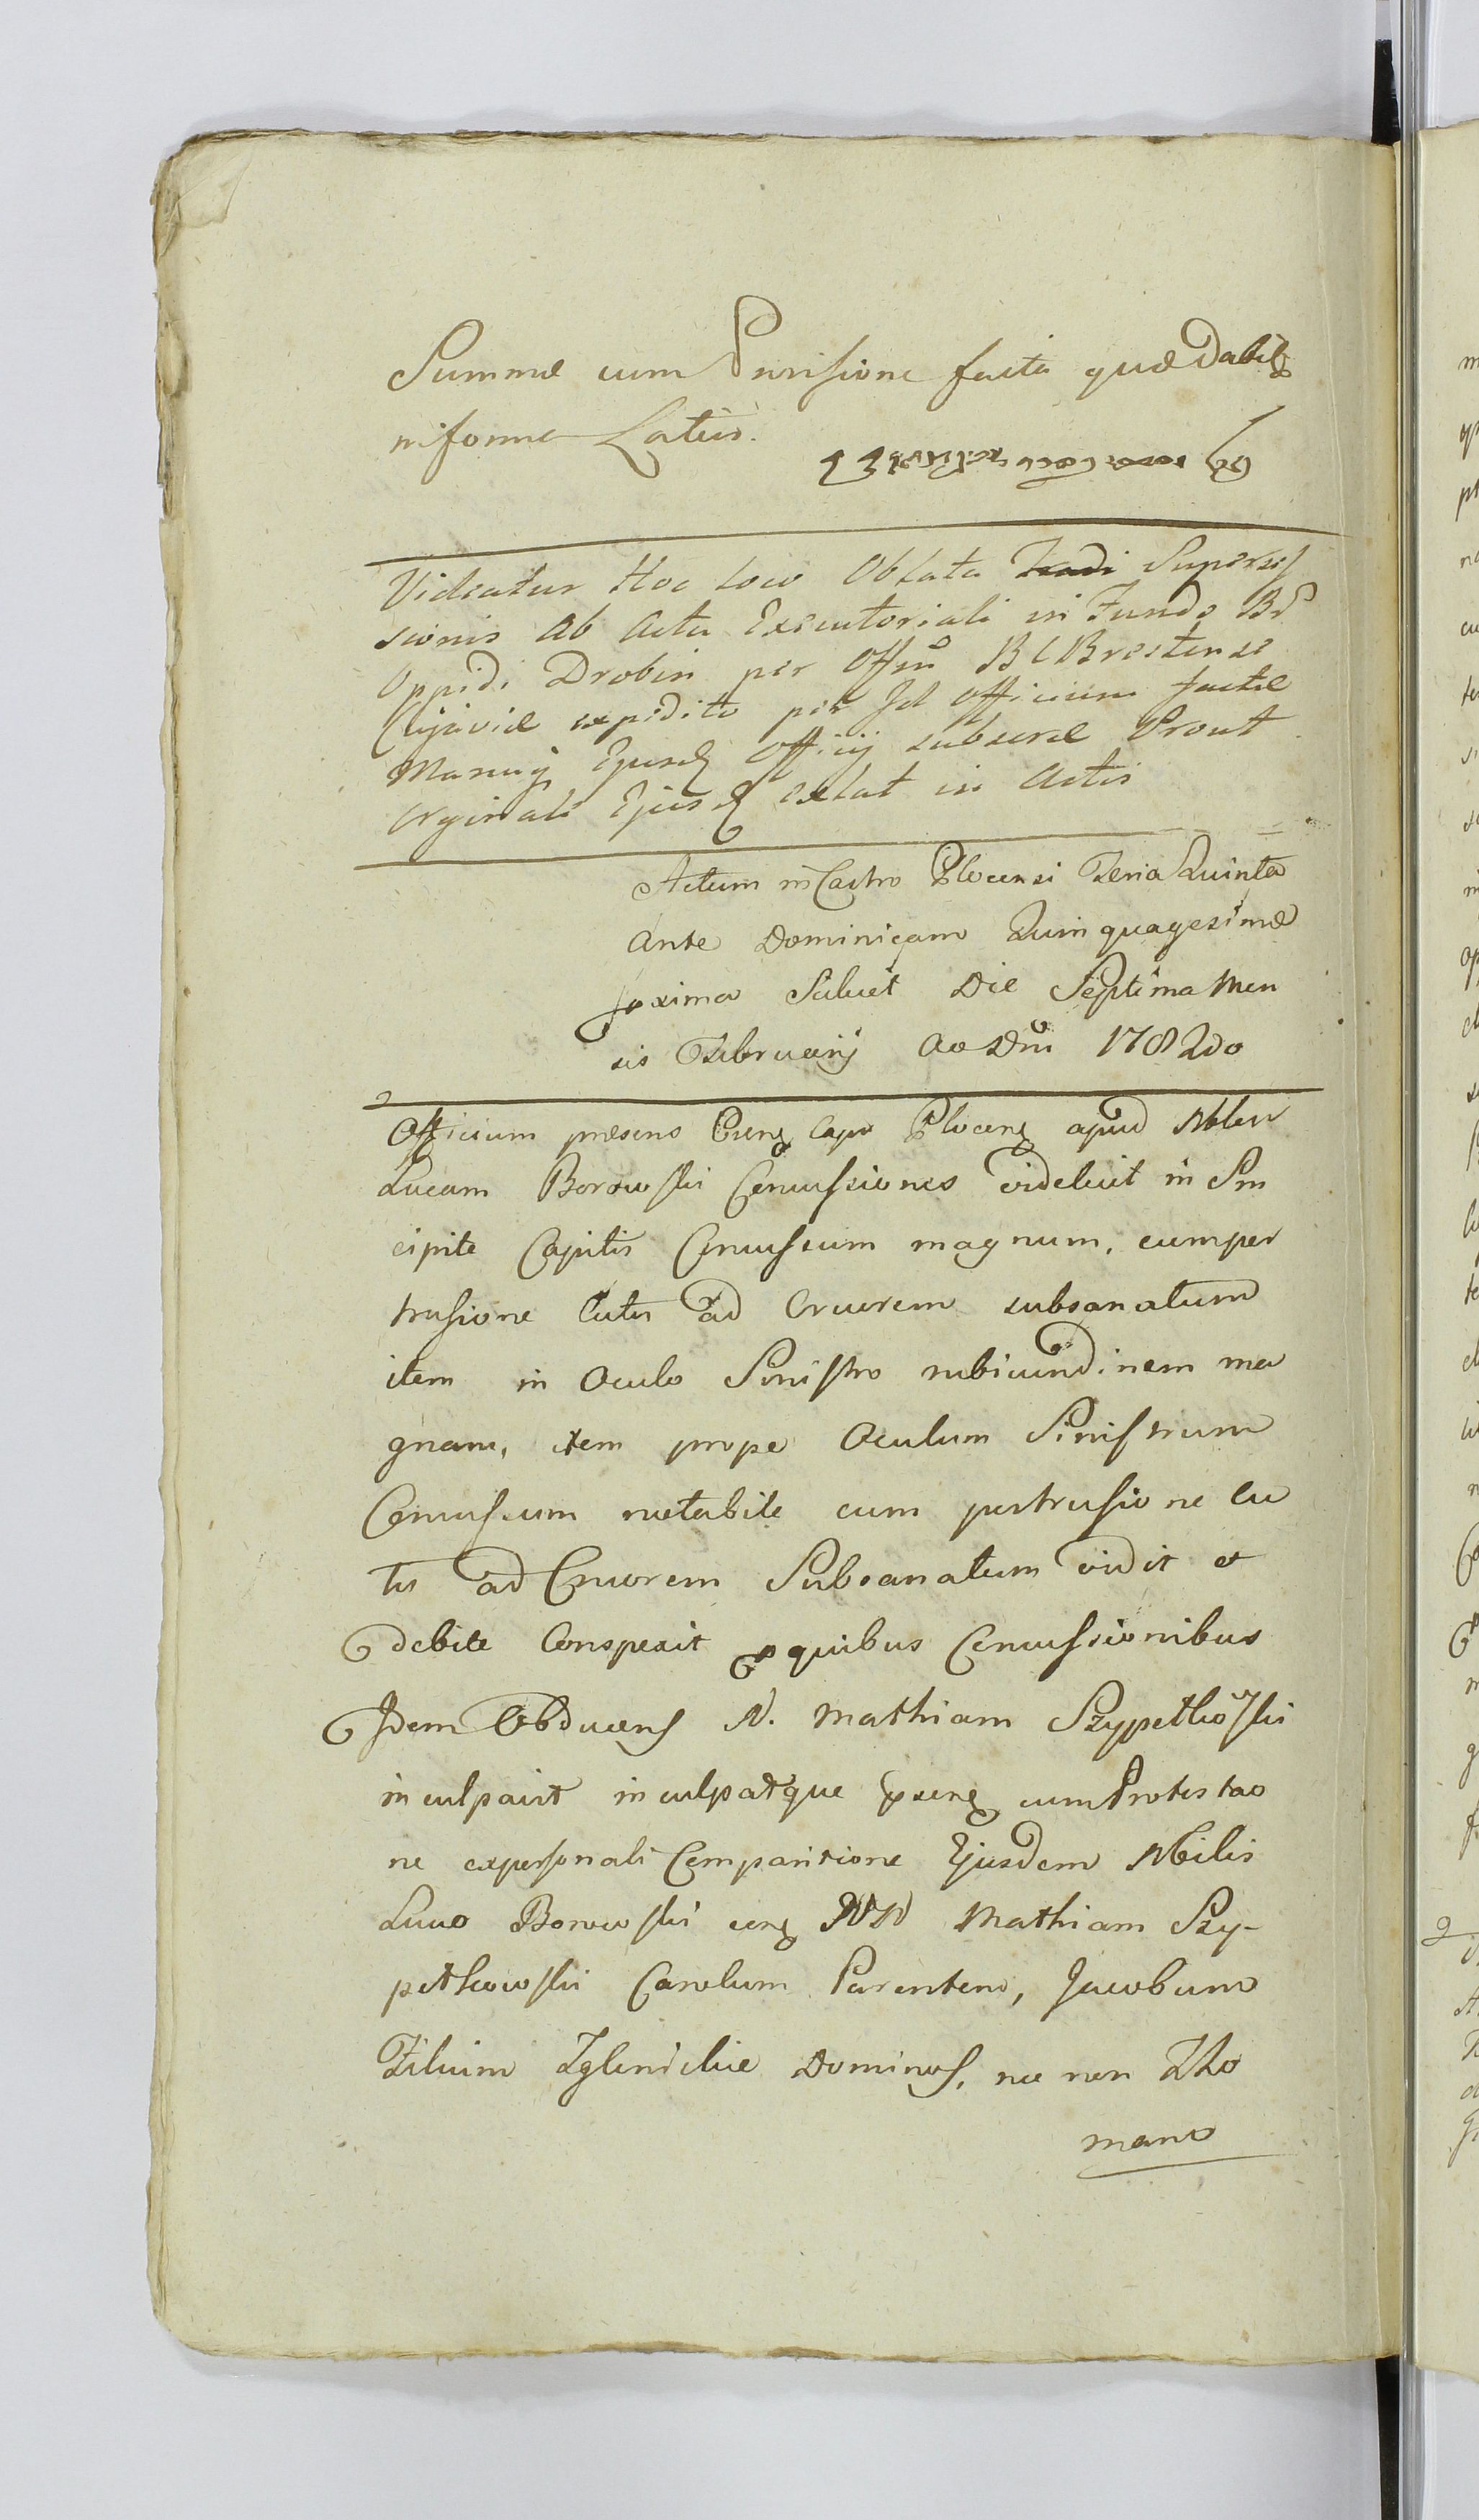 Summæ cum Provisione facta quæ Dabit
in forma Latius.
Videatur Hoc Loco Oblata Tradi Supersess
sionis ab Actu Executoriali in Fundo Bd
Oppidi Drobin per Offm BCBrestense
Cujaviæ expedito per Id Officium factæ
Manuq Ejusdq Officij subscræ Prout
Orginale Ejusdq extat in Actis
Actum in Castro Plocensi Feria Quinta
Ante Dominicam Quinquagesimæ
proxima Scilicet Die Septima Men
sis Februarij Ao Dni 1782do
Officium præsens Cseng Capx Ploceng apud Nblem
Lucam Borowski Concussiones videlicet in Sin
cipite Capitis Concussum magnum, cum per
trusione Cutis ad Cruorem subsanatum
item in Oculo Sinistro rubicundinem ma
gnam, item prope Oculum Sinistrum
Concussum notabile cum pertrusione Cu
tis ad Cruorem Subsanatum vidit et
debite Conspexit pro quibus Concussionibus
Idem Obducens N. Mathiam Szypetkowski
inculpavit inculpatque pseng cum Protestao
ne ex personali Comparitione Ejusdem Nbilis
Luca Borowski cong NN Mathiam Szy-
petkowski Carolum Parentem, Jacobum
Filium Zglenickie Dominos, nec non Tho
mam